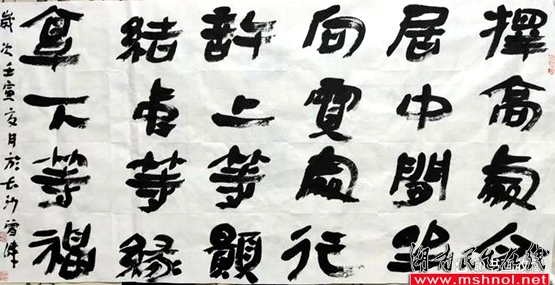 擇高處立
居中間坐
向寬處行
許上等願
結等緣
享下等福
歲次壬寅夏月於长沙
湖南民生在线
www.mshnol.net